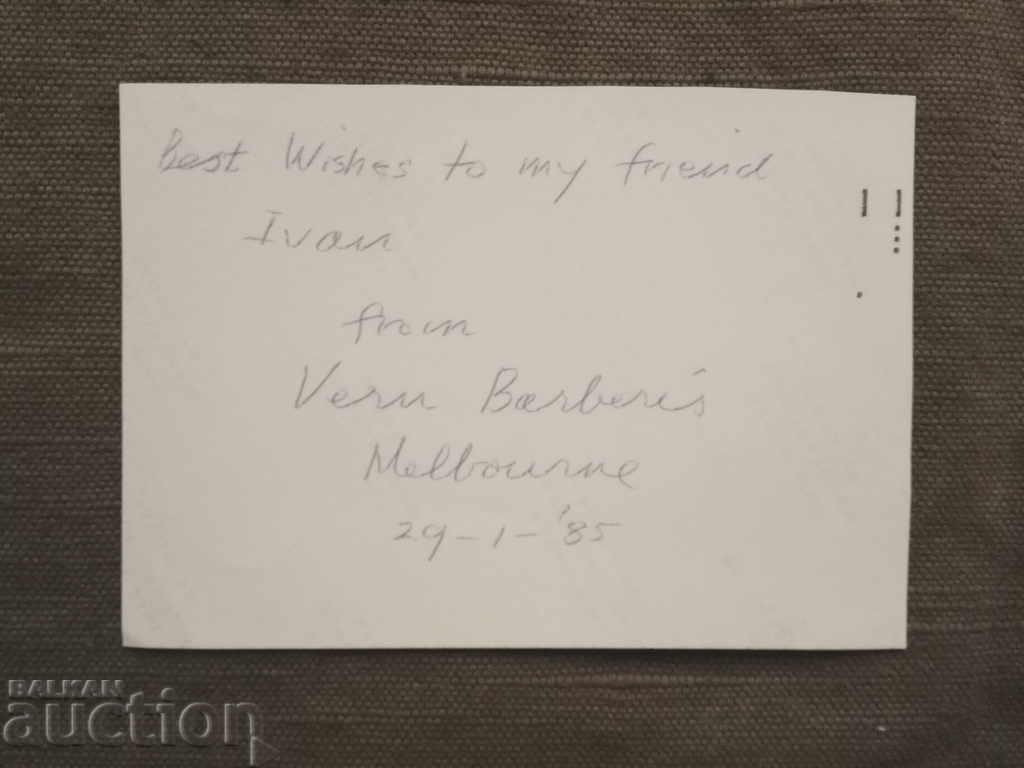 Best Wishes to my friend
Ivan
from
Vern Barberis
Melbourne
29-1-'85
BALKAN
auction